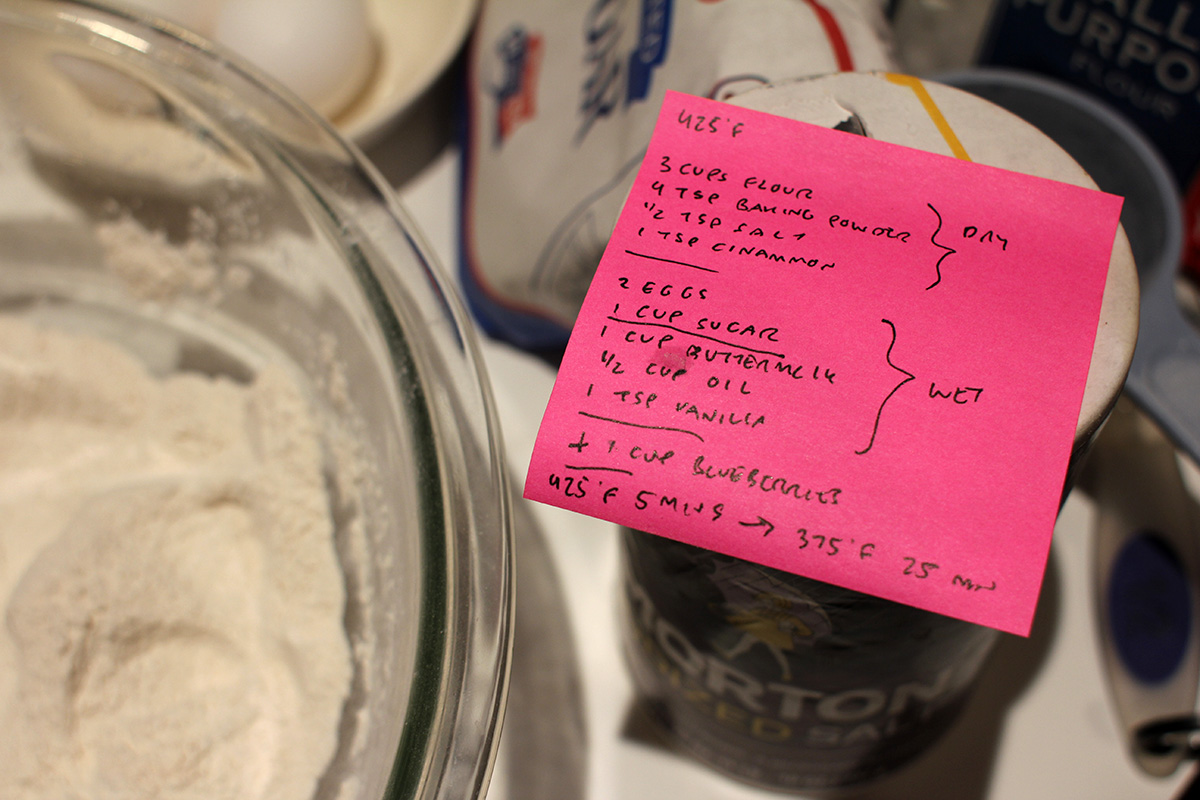 425°F
3 CUPS FLOUR
4 TSP BAKING POWDER
1/2 TSP SALT
1 TSP CINAMMON
DRY
2 EGGS
1 CUP SUGAR
1 CUP BUTTERMILK
1/2 CUP OIL
1 TSP VANILLA
WET
+ 1 CUP BLUEBERRIES
425°F 5 MINS → 375°F 25 MIN
ALL
PURPO
FLOUR
MORTON
SALT